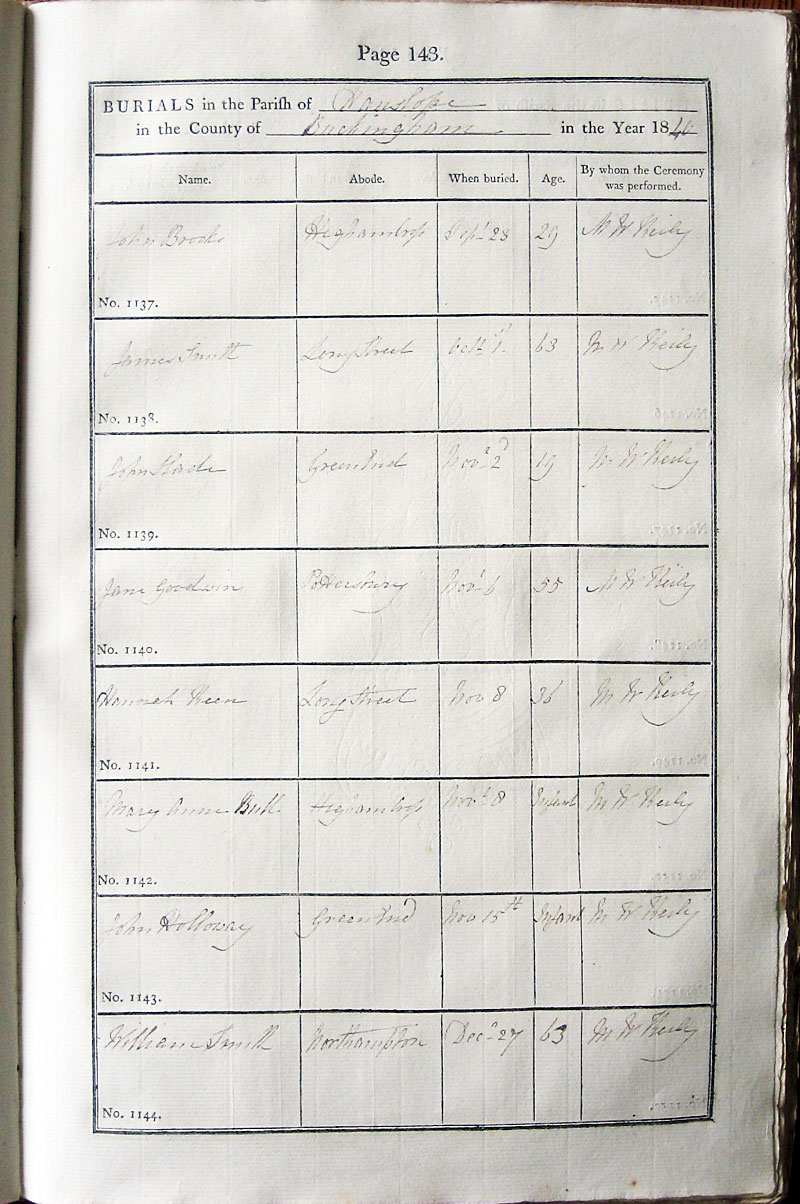 Page 143.
BURIALS in the Parish of Hanslope
in the County of Buckingham in the Year 184
Name. Abode. When buried. Age. By whom the Ceremony was performed.
John Brooks Highamcross Sept 28 29 M W Heily
No. 1137.
James Smith Long Street Octr 1st 63 M W Heily
No. 1138.
John Slade Green End Novr 2d 19 M W Heily
No. 1139.
Jane Goodwin Pottersbury Novr 6 55 M W Heily
No. 1140.
Hannah Keen Long Street Nov 8 36 M W Heily
No. 1141.
Mary Anne Bull Highamcross Novr 8 Infant M W Heily
No. 1142.
John Holloway Green End Nov 15th Infant M W Heily
No. 1143.
William Smith Northampton Decr 27 63 M W Heily
No. 1144.